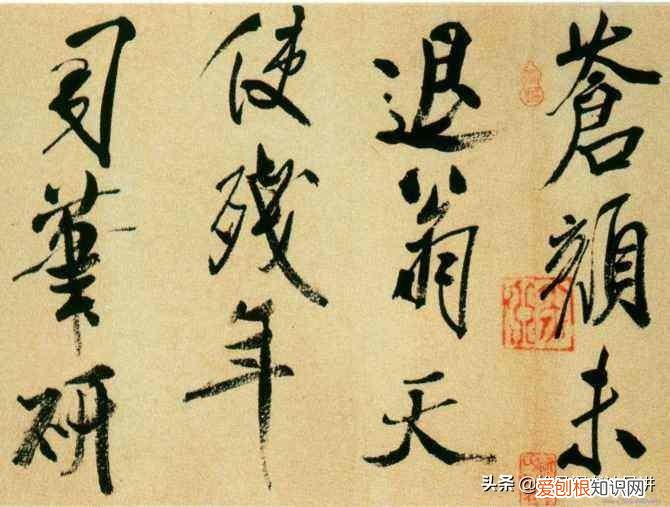 蒼顏未
退翁天
使殘年
司筆研
头条 @
爱刨根知识网